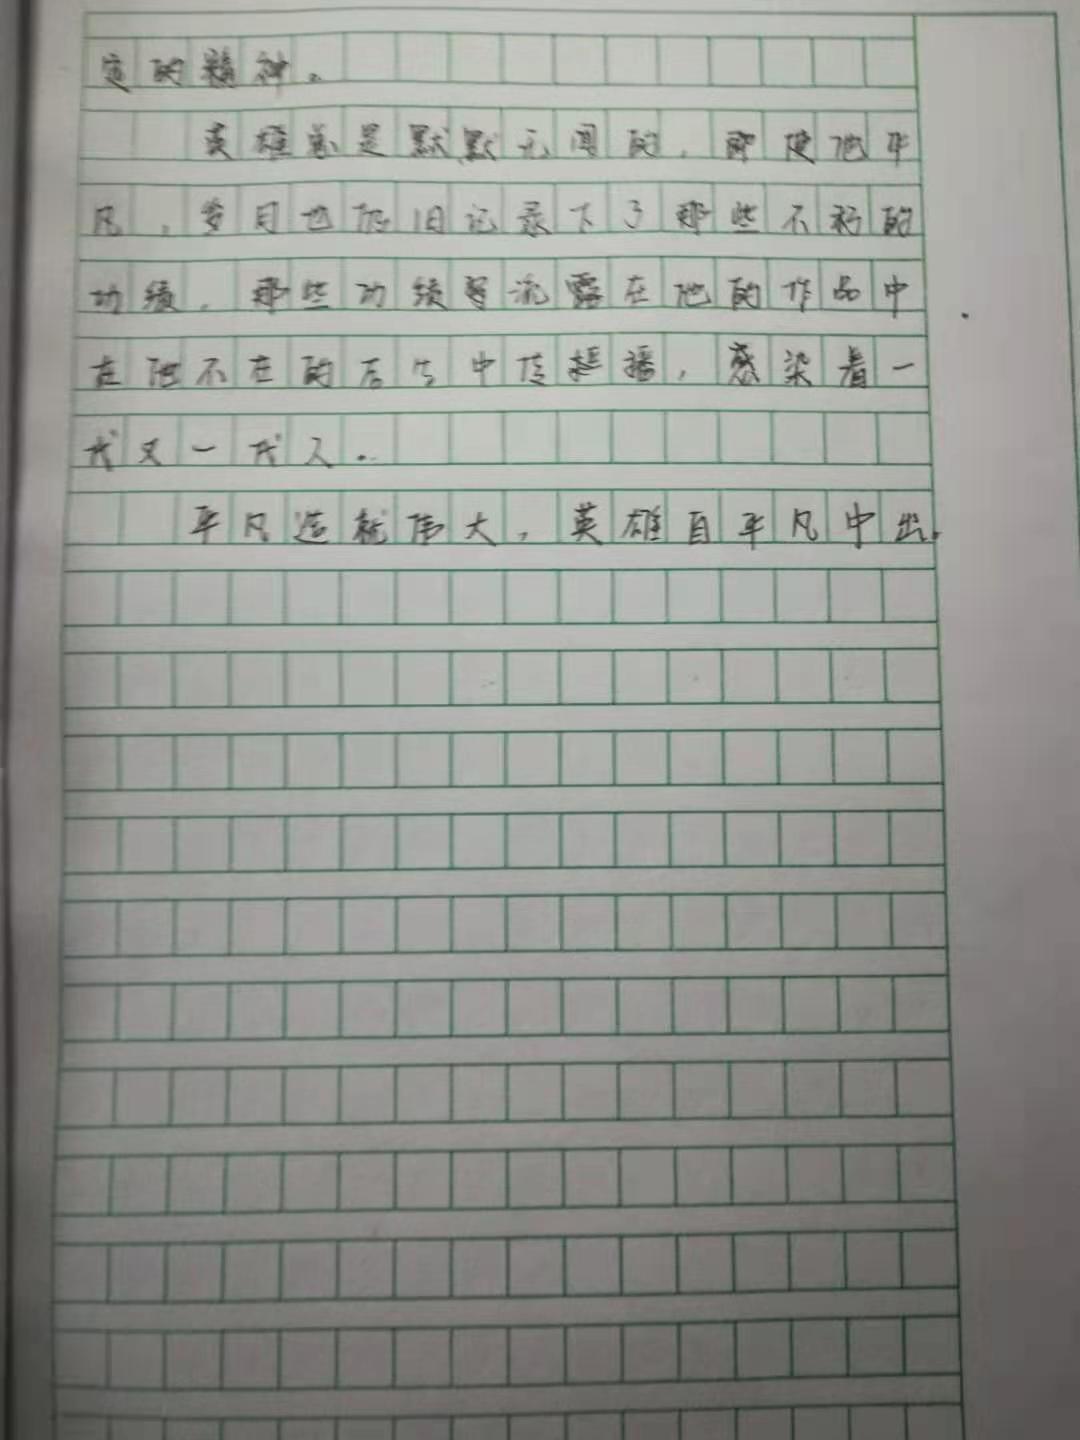 定的精神。
英雄总是默默无闻的,即使他平
凡,岁月也仍旧记录下了那些不朽的
功绩,那些功绩皆流露在他的作品中
在他不在的后生中传播,感染着一
代又一代人。
平凡造就伟大,英雄自平凡中出.